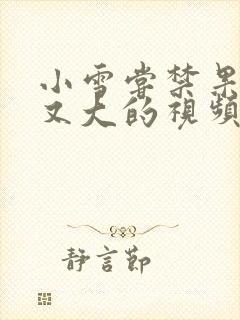 小雪嘗禁果
又大的視頻
靜言節